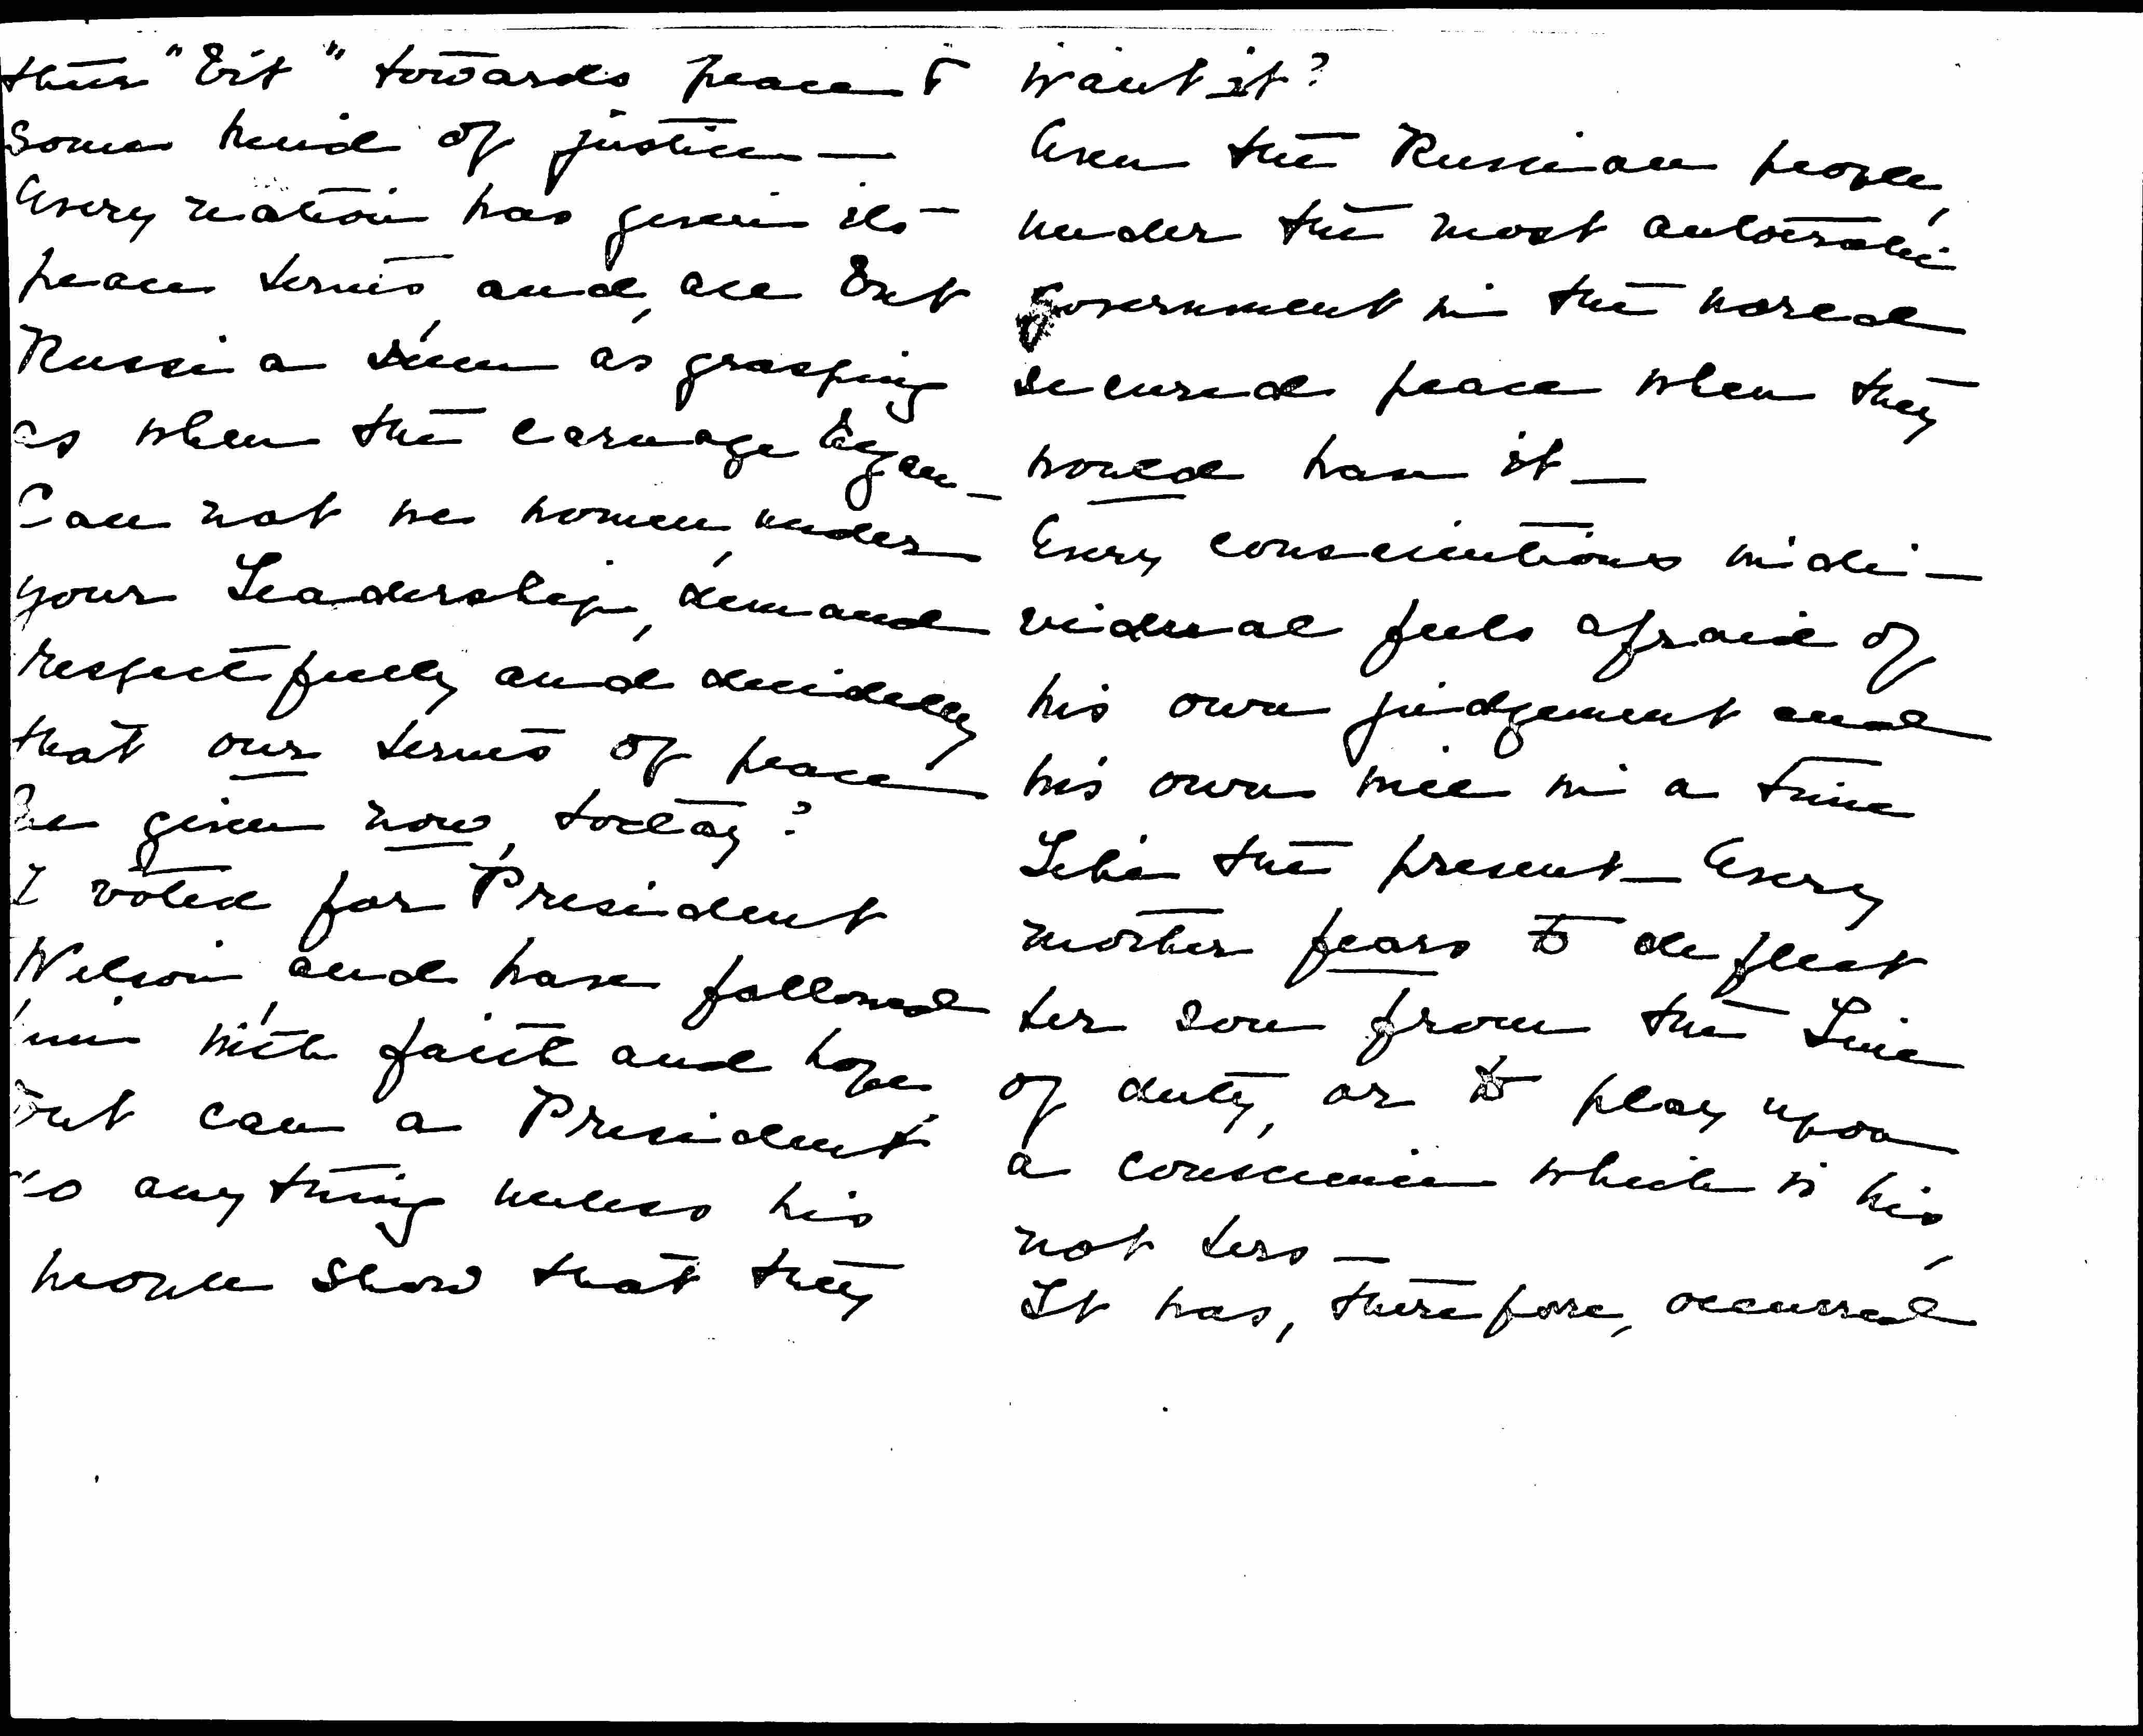 their "bit" towards peace &
some kind of justice —
Every nation has given its
peace terms, and, all but
Russia seem as grasping
as when the carnage began —
Can not we women, under
your Leadership, demand
respectfully and decidedly
that our terms of peace
be given now, today?
I voted for President
Wilson, and have followed
him with faith and hope,
but can a President
do anything unless his
people show that they
want it?
Even the Russian people,
under the most autocratic
government in the world
secured peace when they
would have it —
Every conscientious indi-
vidual feels afraid of
his own judgement and
his own will in a time
Like the present — Every
mother fears to deflect
her son from the Line
of duty, or to play upon
a conscience which is his,
not hers —
It has, therefore, occurred